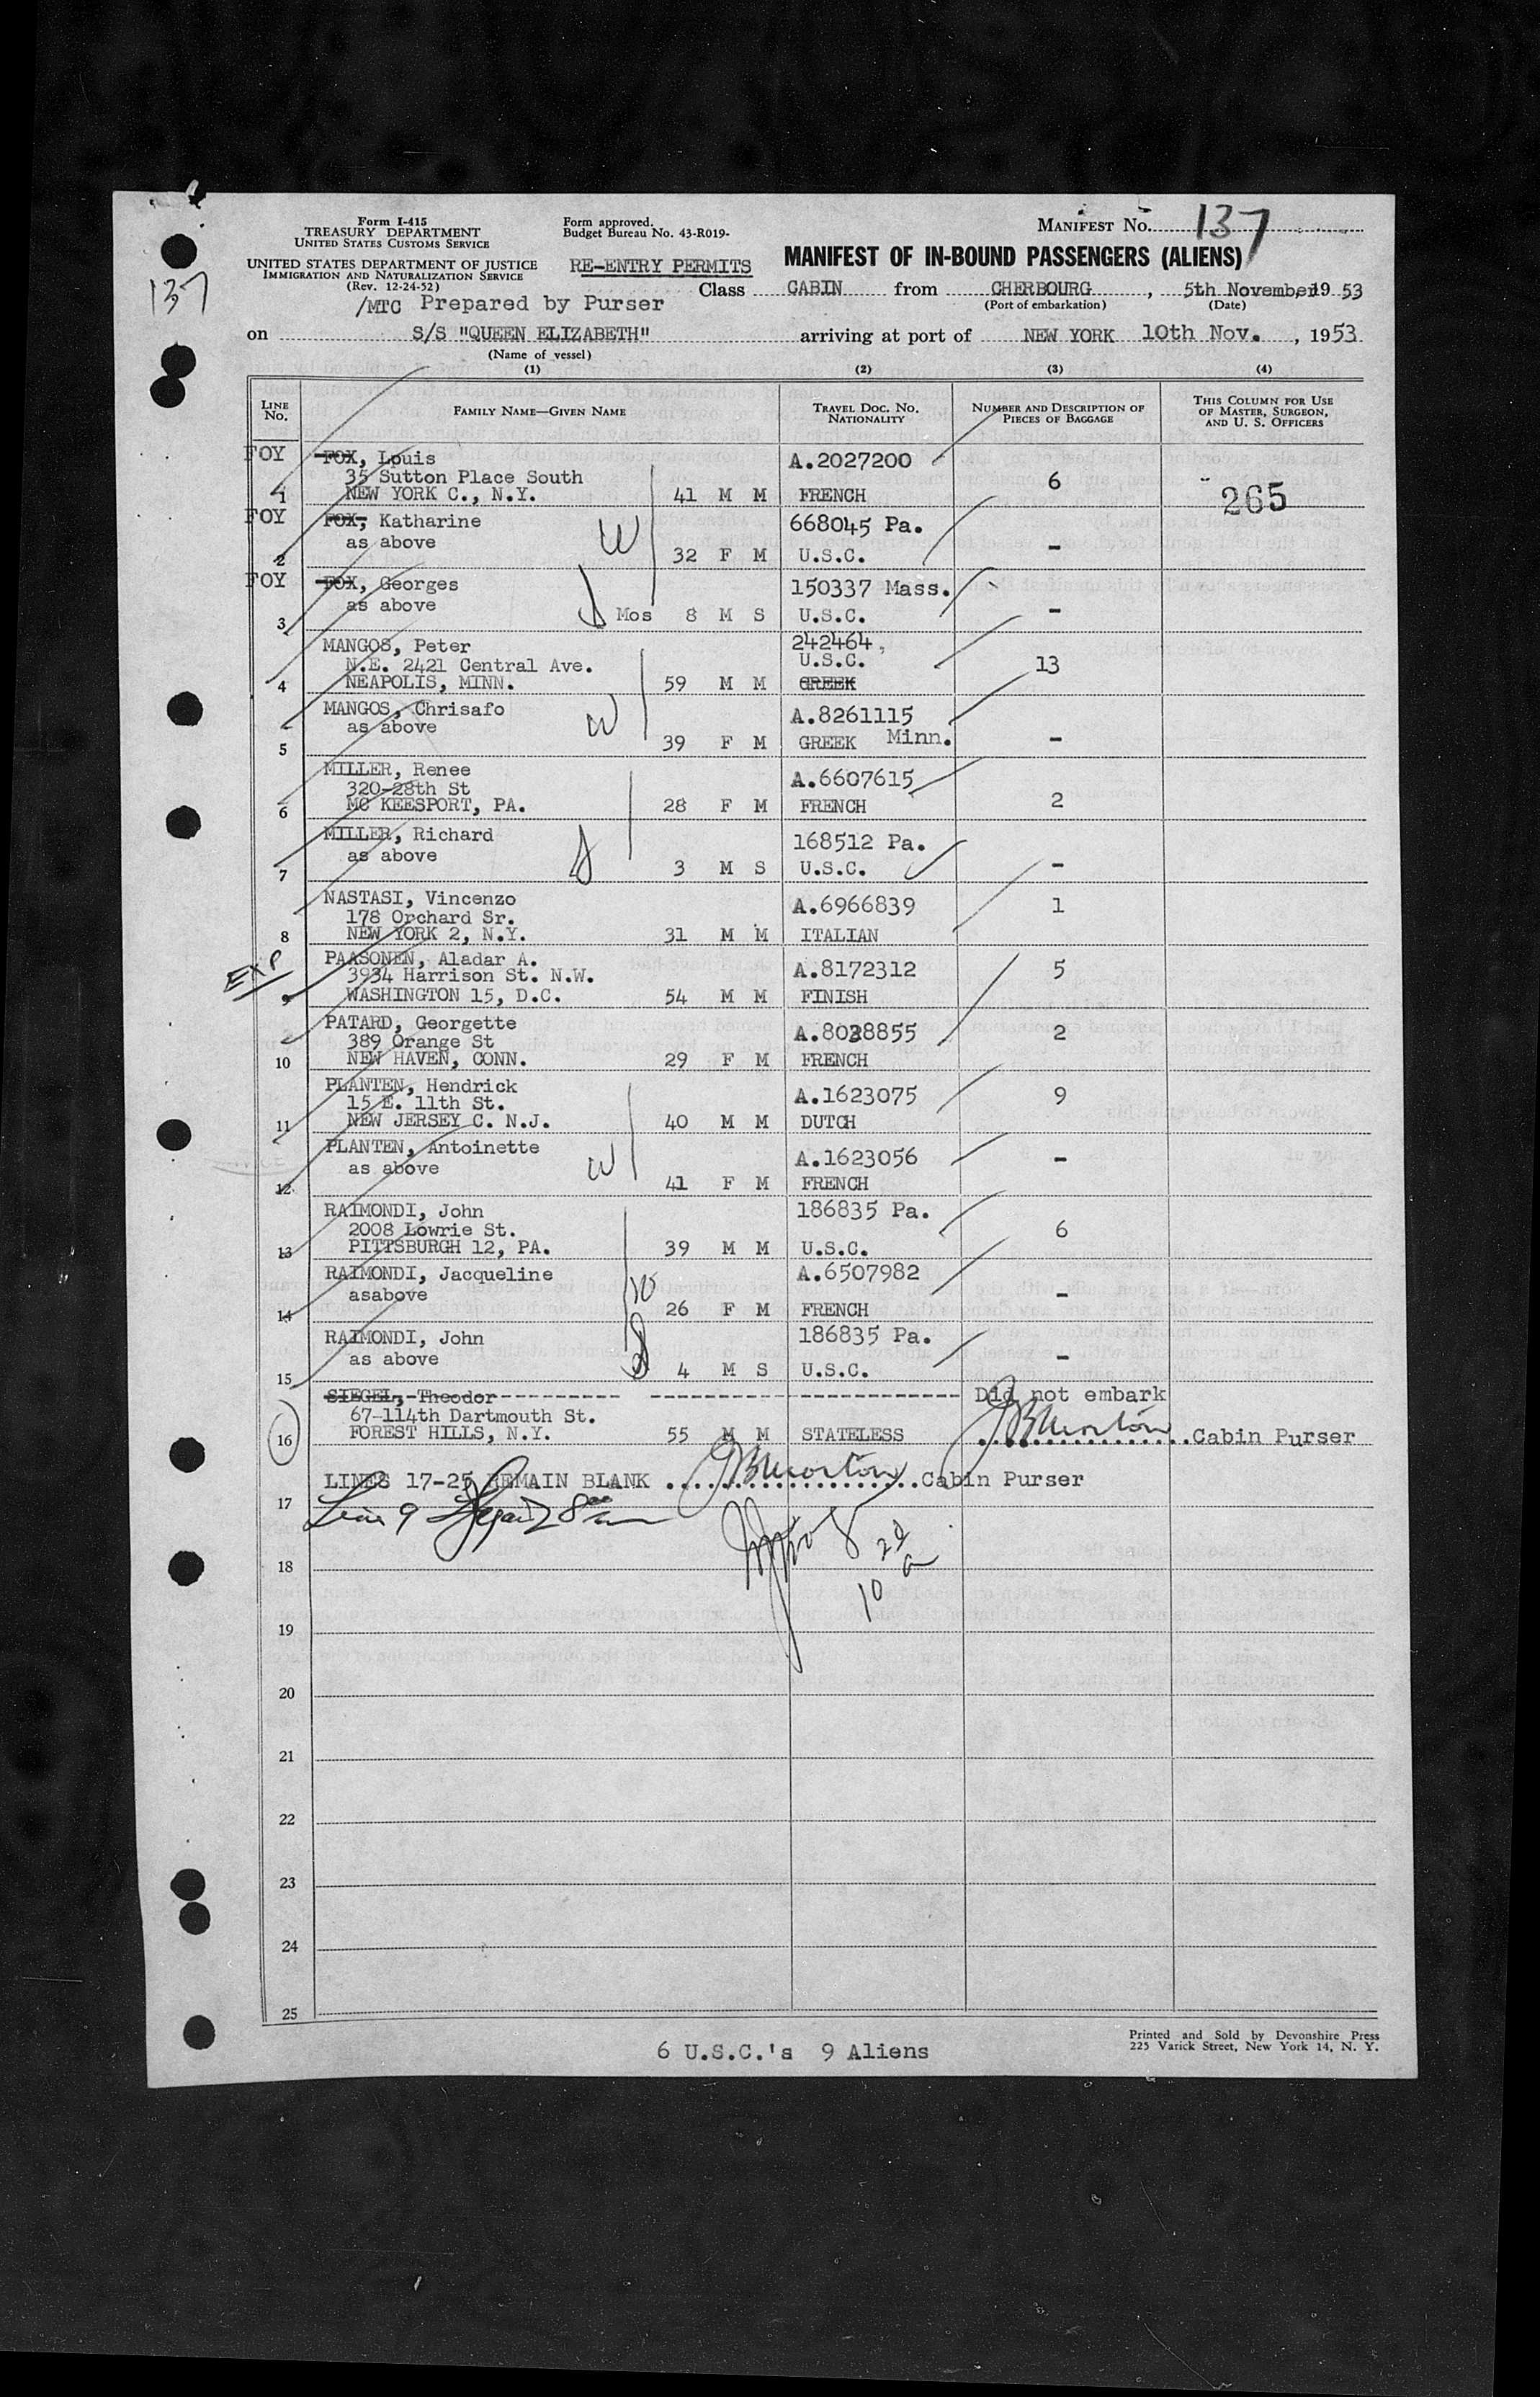 Form I-415
TREASURY DEPARTMENT
UNITED STATES CUSTOMS SERVICE
Form approved.
Budget Bureau No. 43-R019-
MANIFEST No. 137
137
UNITED STATES DEPARTMENT OF JUSTICE
IMMIGRATION AND NATURALIZATION SERVICE
(Rev. 12-24-52)
RE-ENTRY PERMITS
MANIFEST OF IN-BOUND PASSENGERS (ALIENS)
/MTC Prepared by Purser
Class CABIN from CHERBOURG, 5th November 19 53
(Port of embarkation) (Date)
on S/S "QUEEN ELIZABETH" arriving at port of NEW YORK 10th Nov., 1953
(Name of vessel)
(1) (2) (3) (4)
LINE No. FAMILY NAME—GIVEN NAME TRAVEL DOC. NO. NATIONALITY NUMBER AND DESCRIPTION OF PIECES OF BAGGAGE THIS COLUMN FOR USE OF MASTER, SURGEON, AND U. S. OFFICERS
FOY FOX, Louis A.2027200
35 Sutton Place South 6
1 NEW YORK C., N.Y. 41 M M FRENCH 265
FOY FOX, Katharine 668045 Pa.
as above W
2 32 F M U.S.C. -
FOY FOX, Georges 150337 Mass.
as above
3 Mos 8 M S U.S.C. -
MANGOS, Peter 242464
N.E. 2421 Central Ave. U.S.C. 13
4 NEAPOLIS, MINN. 59 M M GREEK
MANGOS, Chrisafo A.8261115
as above W
5 39 F M GREEK Minn. -
MILLER, Renee A.6607615
320-28th St
6 MC KEESPORT, PA. 28 F M FRENCH 2
MILLER, Richard 168512 Pa.
as above
7 3 M S U.S.C. -
NASTASI, Vincenzo A.6966839 1
178 Orchard Sr.
8 NEW YORK 2, N.Y. 31 M M ITALIAN
EXP PAASONEN, Aladar A. A.8172312 5
3934 Harrison St. N.W.
9 WASHINGTON 15, D.C. 54 M M FINISH
PATARD, Georgette A.8038855 2
389 Orange St
10 NEW HAVEN, CONN. 29 F M FRENCH
PLANTEN, Hendrick A.1623075 9
15 E. 11th St.
11 NEW JERSEY C. N.J. 40 M M DUTCH
PLANTEN, Antoinette A.1623056 -
as above W
12 41 F M FRENCH
RAIMONDI, John 186835 Pa.
2008 Lowrie St. 6
13 PITTSBURGH 12, PA. 39 M M U.S.C.
RAIMONDI, Jacqueline A.6507982
asabove W -
14 26 F M FRENCH
RAIMONDI, John 186835 Pa.
as above -
15 4 M S U.S.C.
SIEGEL, Theodor Did not embark
67-114th Dartmouth St.
16 FOREST HILLS, N.Y. 55 M M STATELESS Cabin Purser
LINES 17-25 REMAIN BLANK Cabin Purser
17
Line 9
18
10
19
20
21
22
23
24
25
6 U.S.C.'s 9 Aliens
Printed and Sold by Devonshire Press
225 Varick Street, New York 14, N. Y.